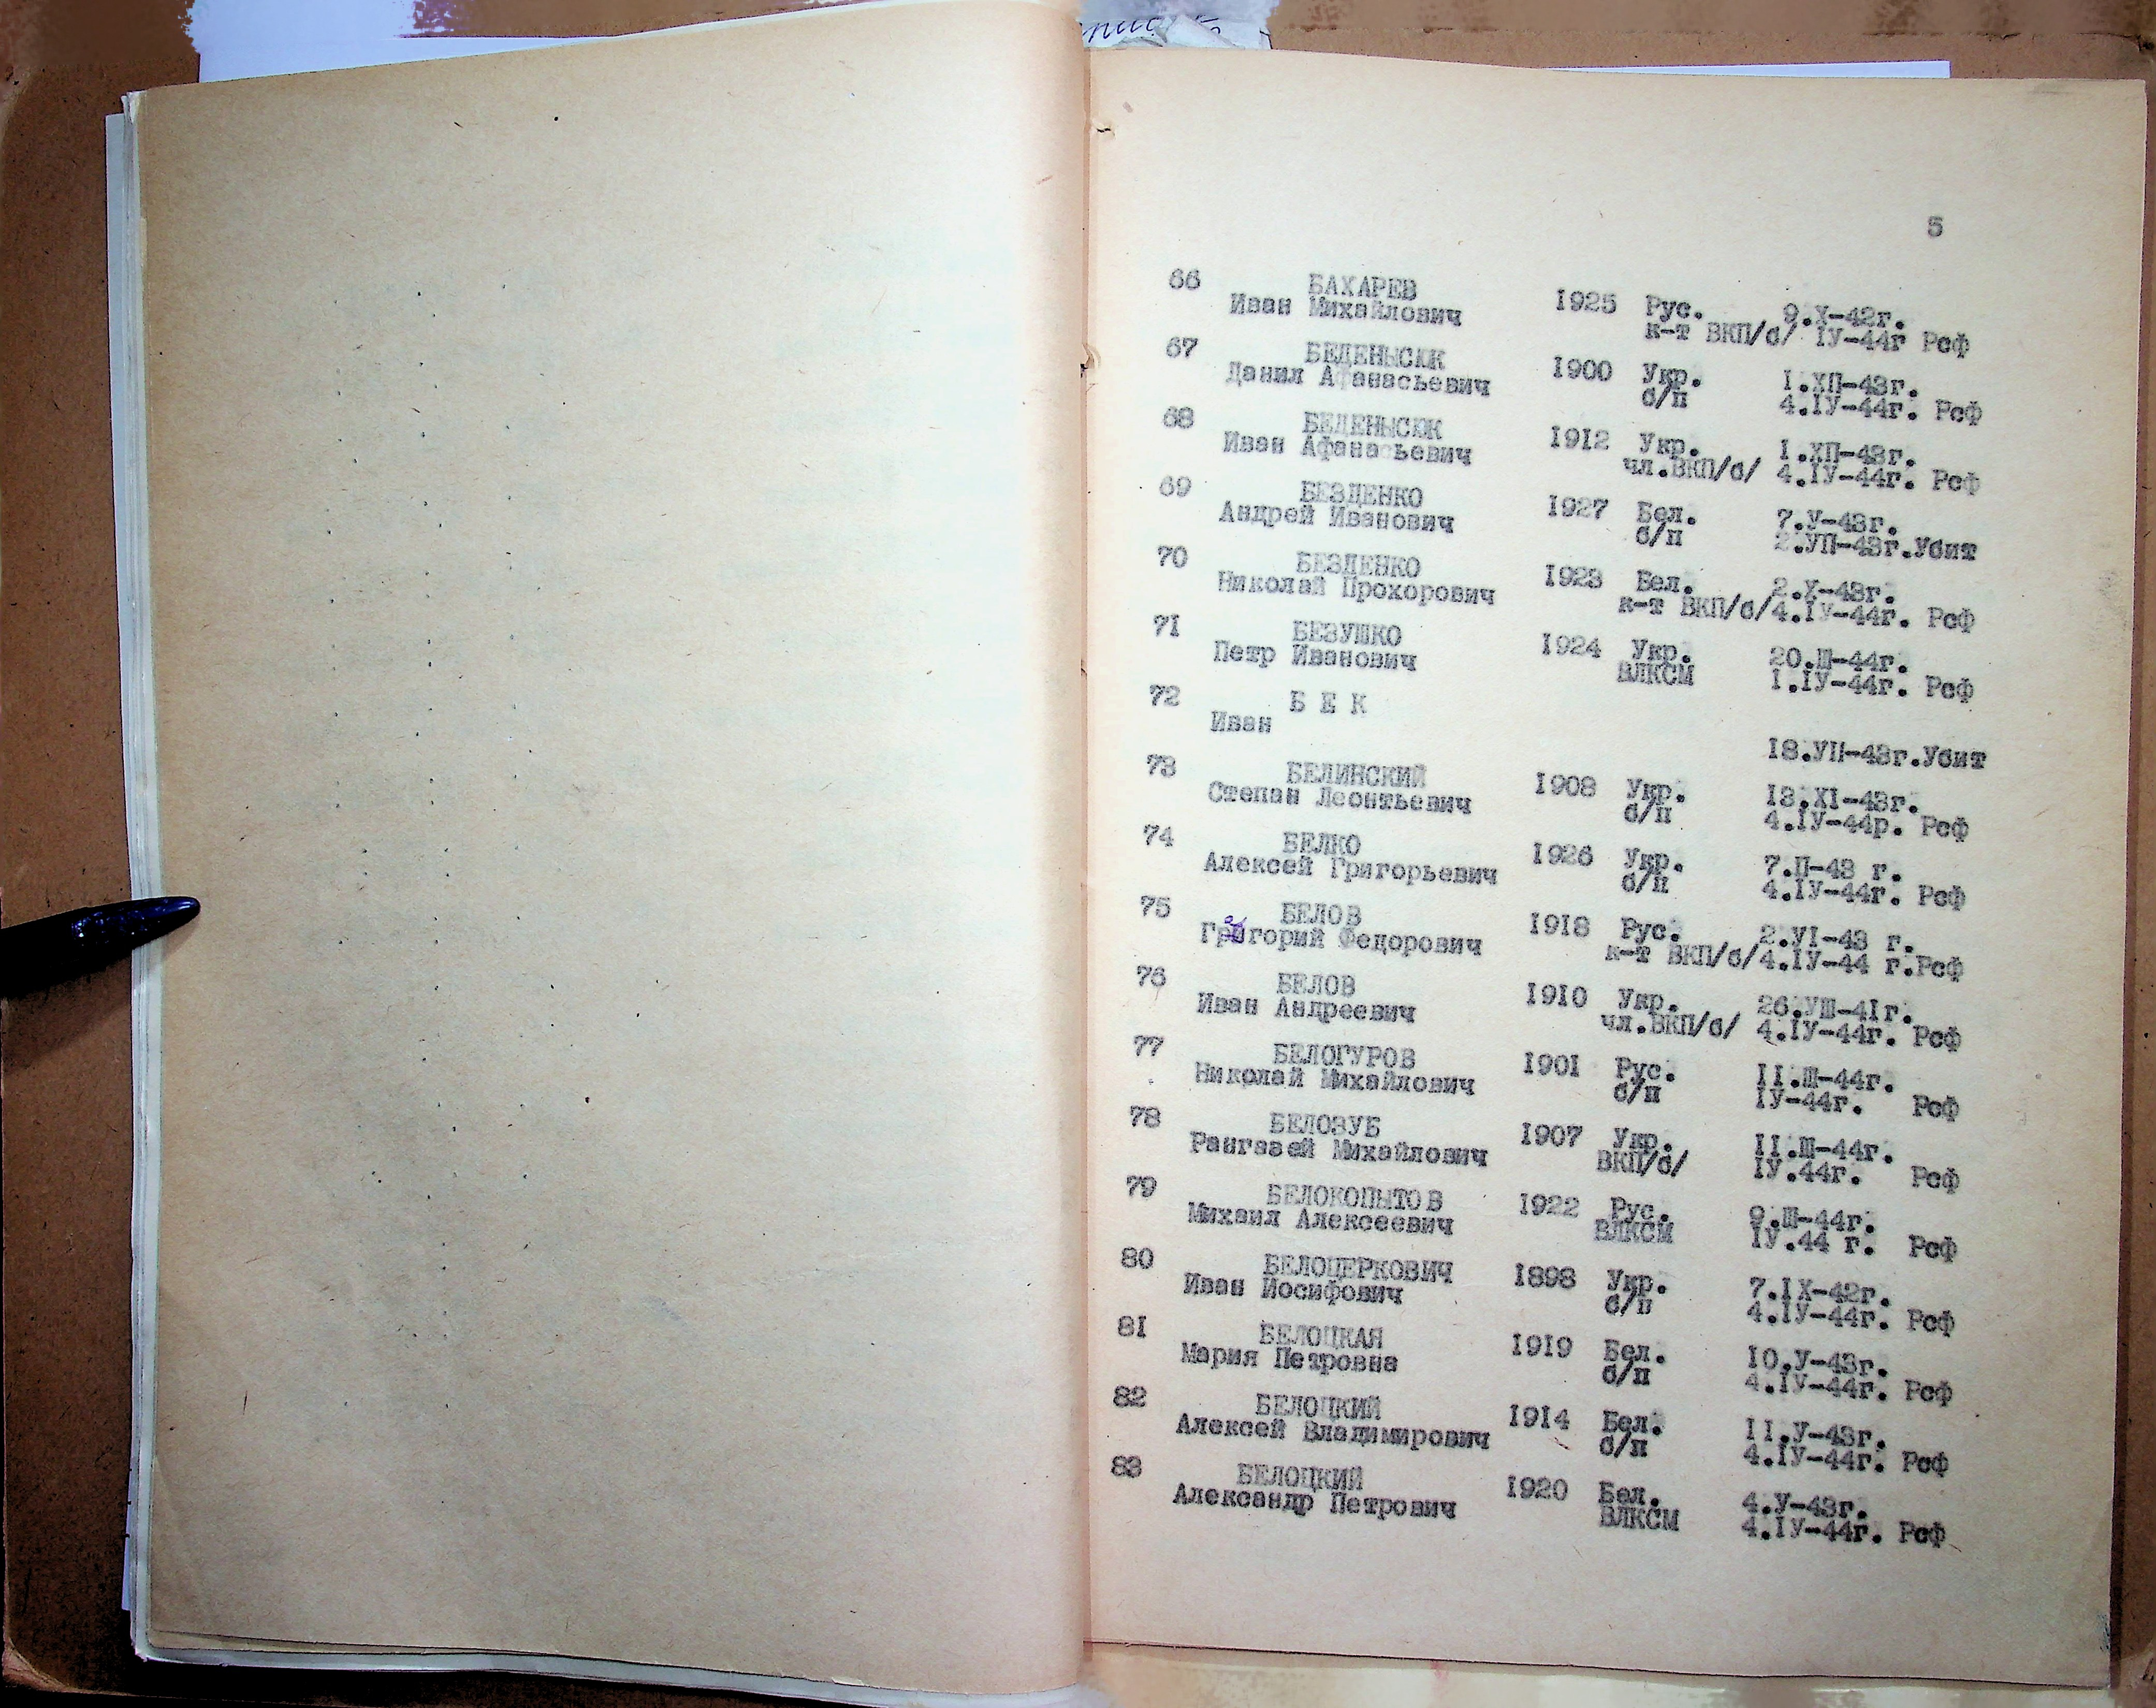 5
66 БАХАРЕВ 1925 Рус. 9.X-42г.
Иван Михайлович к-т ВКП/б/ IУ-44г Рсф
67 БЕДЕНЫСЮК 1900 Укр. I.ХП-43г.
Данил Афанасьевич б/п 4.IУ-44г. Рсф
68 БЕДЕНЫСЮК 1912 Укр. I.ХП-43г.
Иван Афанасьевич чл.ВКП/б/ 4.IУ-44г. Рсф
69 БЕЗДЕНКО 1927 Бел. 7.У-43г.
Андрей Иванович б/п 2.УП-43г.Убит
70 БЕЗДЕНКО 1923 Бел. 2.X-43г.
Николай Прохорович к-т ВКП/б/4.IУ-44г. Рсф
71 БЕЗУШКО 1924 Укр. 20.Ш-44г.
Петр Иванович ВЛКСМ I.IУ-44г. Рсф
72 Б Е К
Иван 18.УП-43г.Убит
73 БЕЛИНСКИЙ 1908 Укр. 13.XI-43г.
Степан Леонтьевич б/п 4.IУ-44р. Рсф
74 БЕЛКО 1926 Укр. 7.П-43 г.
Алексей Григорьевич б/п 4.IУ-44г. Рсф
75 БЕЛОВ 1918 Рус. 2.УI-43 г.
Григорий Федорович к-т ВКП/б/4.IУ-44 г.Рсф
76 БЕЛОВ 1910 Укр. 26.УШ-41г.
Иван Андреевич чл.ВКП/б/ 4.IУ-44г. Рсф
77 БЕЛОГУРОВ 1901 Рус. II.Ш-44г.
Николай Михайлович б/п IУ-44г. Рсф
78 БЕЛОЗУБ 1907 Укр. II.Ш-44г.
Рангазей Михайлович ВКП/б/ IУ.44г. Рсф
79 БЕЛОКОПЫТОВ 1922 Рус. 9.Ш-44г.
Михаил Алексеевич ВЛКСМ IУ.44 г. Рсф
80 БЕЛОЦЕРКОВИЧ 1898 Укр. 7.IX-42г.
Иван Иосифович б/п 4.IУ-44г. Рсф
81 БЕЛОЦКАЯ 1919 Бел. 10.У-43г.
Мария Петровна б/п 4.IУ-44г. Рсф
82 БЕЛОЦКИЙ 1914 Бел. II.У-43г.
Алексей Владимирович б/п 4.IУ-44г. Рсф
83 БЕЛОЦКИЙ 1920 Бел. 4.У-43г.
Александр Петрович ВЛКСМ 4.IУ-44г. Рсф